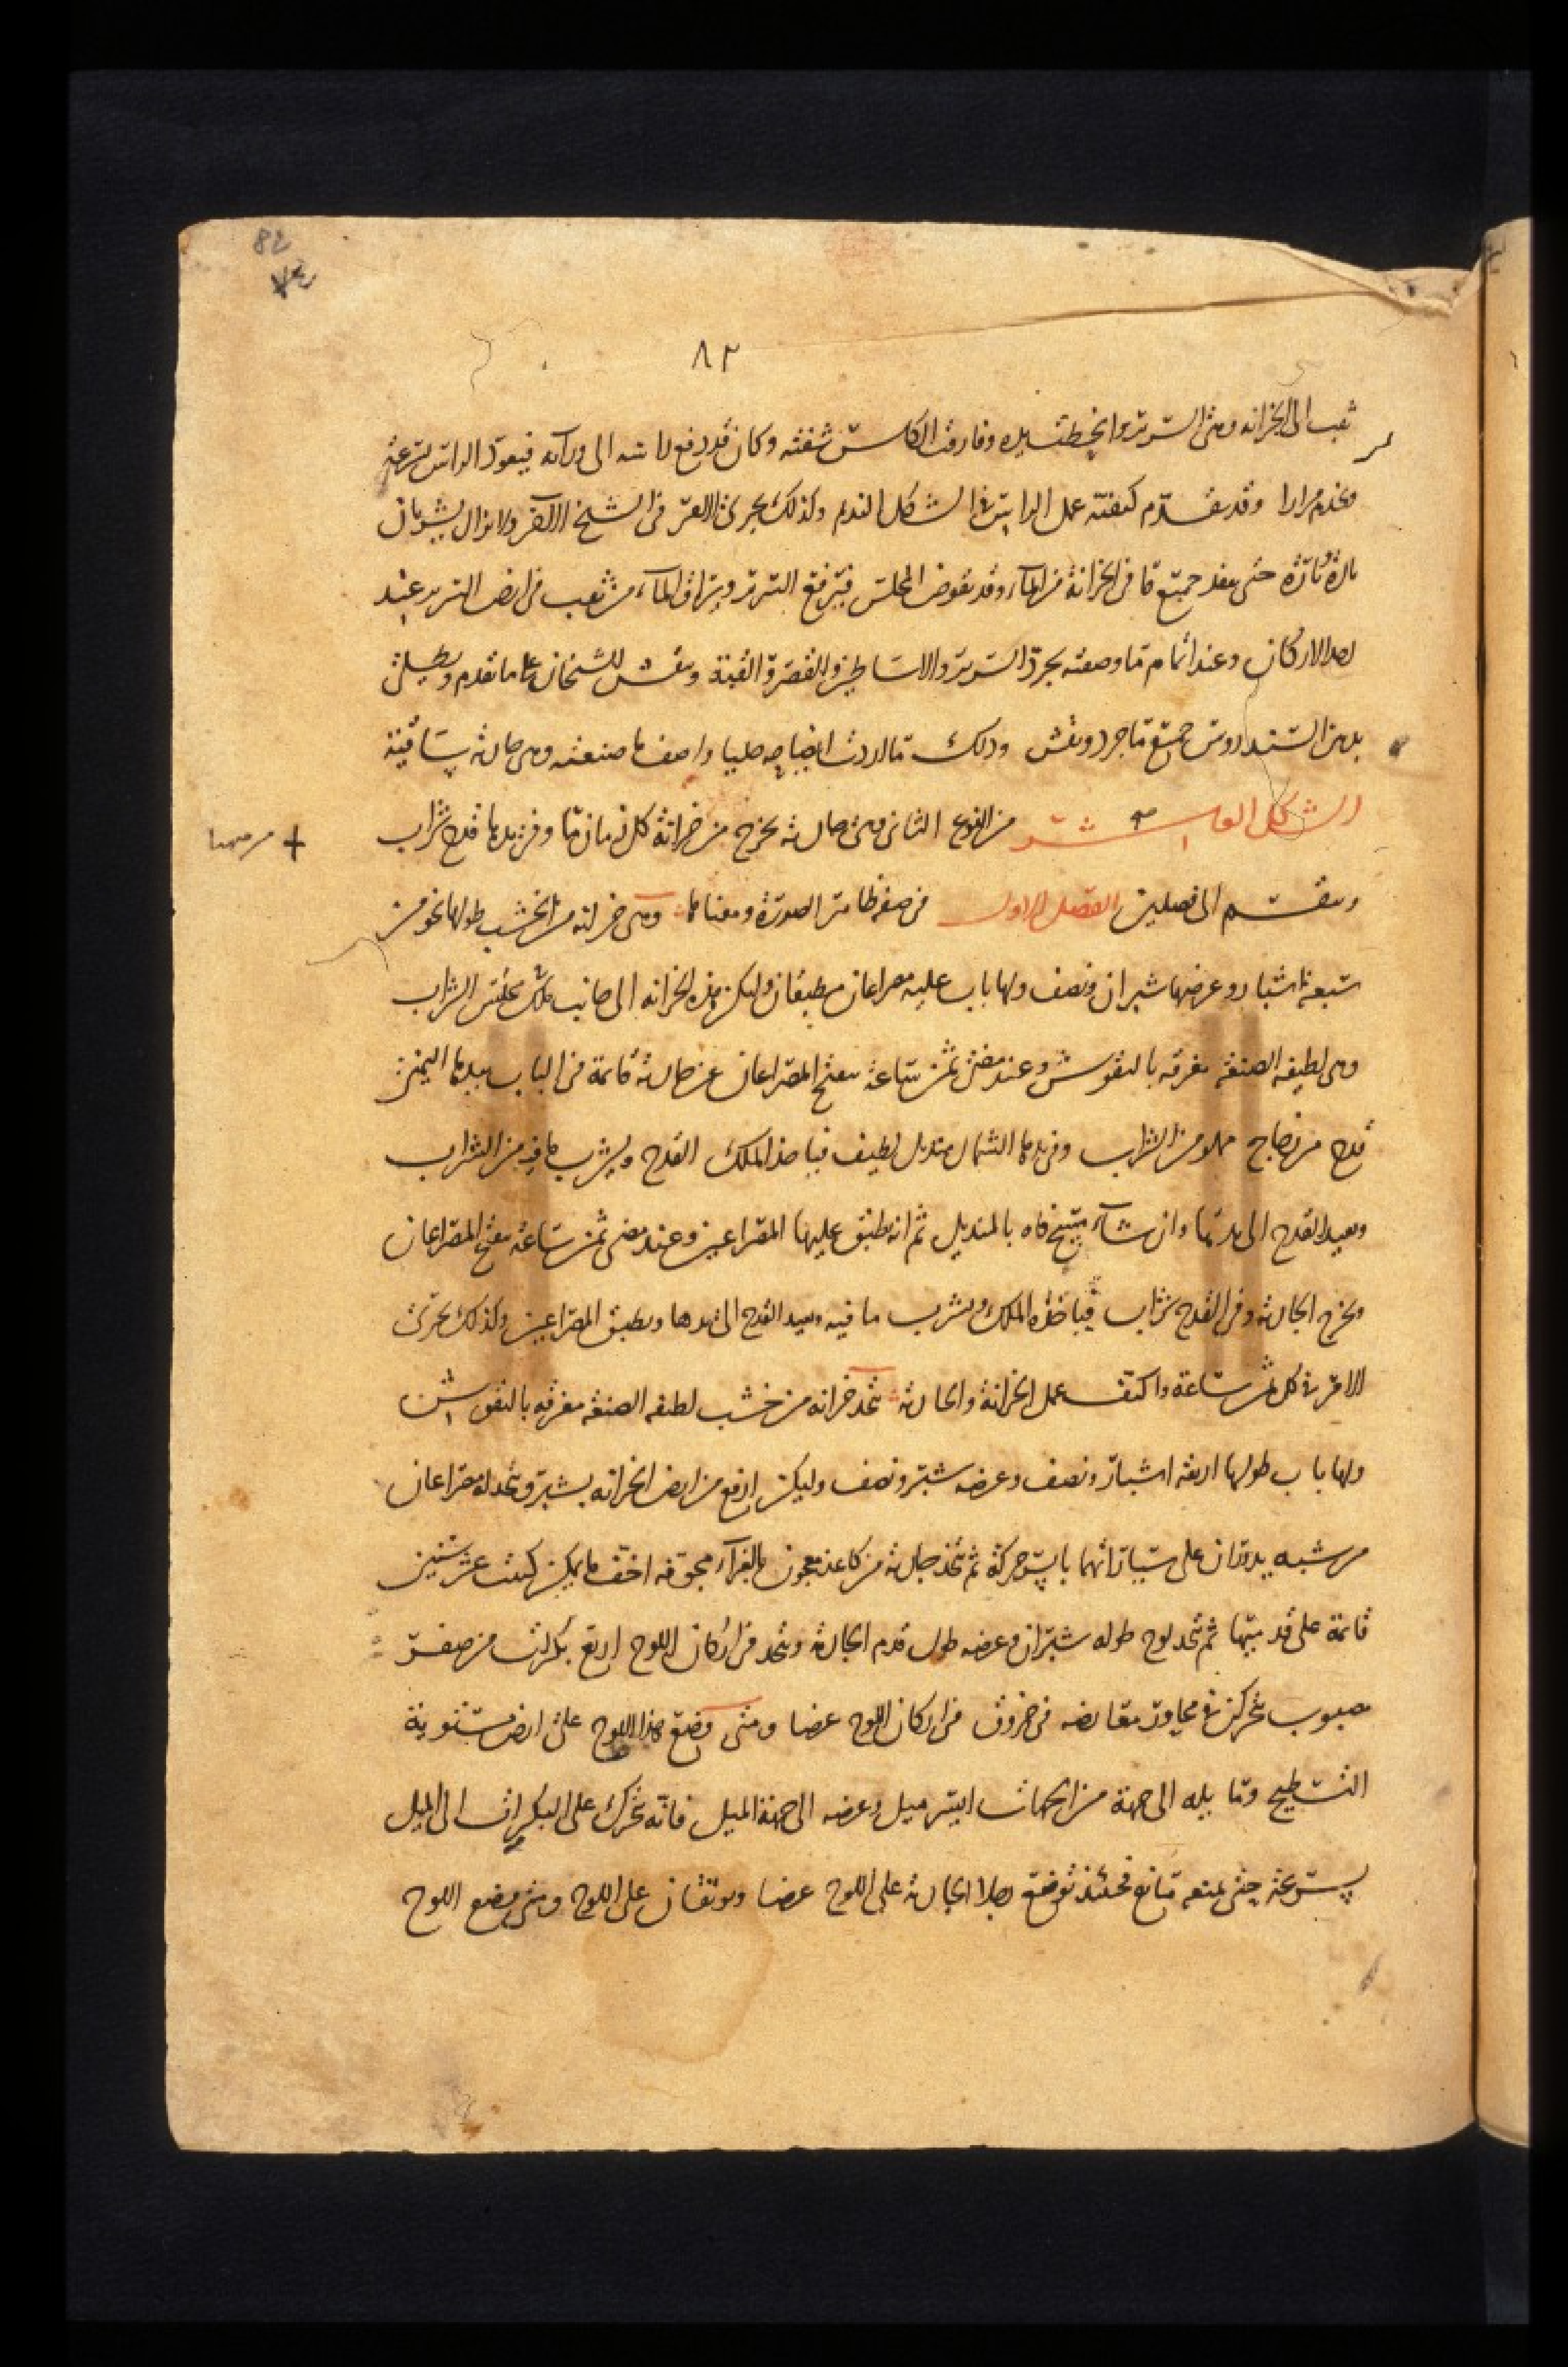 82
٨٢
ثقب الى الخزانه ومتى السرير وانحطت يده وفارقت الكاس شفته وكان قد رفع راسه الى ورآيه فيعود الراس بسرعة
ويخدم مرارا وقد تقدم كيفية عمل الراس في الشكل النديم وكذلك يجرى الامر فى الشيخ الآخر ولا يزال يشربان
تارة وتارة حتى ينفد جميع ما فى الخزانة من المآء وقد يقوض المجلس فيرفع السرير ويراق المآء من ثقب فى ارض السرير عند
احد الاركان وعند اتمام ما وصفته يجرد السرير والاساطين والقصر والقبة وينقش للشيخان على ما تقدم ويطلى
بدهن السندروس جميع ما جرد ونقش وذلك ما اردت ايضاحه جليا واصف ما صنعته وهى جارية ساقية
الشكل العاشر من النوع الثانى وهى جارية تخرج من خزانة كل زمان ما وفى يدها قدح شراب
وينقسم الى فصلين الفصل الاول فى صفة ظاهر الصورة ومعناها وهى خزانة من الخشب طولها نحو من
سبعة اشبار وعرضها شبران ونصف ولها باب عليه مصراعان مطبقان وليكن هذه الخزانه الى جانب ملك مجلس الشراب
وهى لطيفه الصنعة مغرقه بالنقوش وعند مضى ثمن ساعة ينفتح المصراعان عن جارية قائمة فى الباب بيدها اليمنى
قدح من زجاج مملو من الشراب وفى يدها الشمال منديل لطيف فياخذ الملك القدح ويشرب ما فيه من الشراب
ويعيد القدح الى يدها وان شآء يمسح فاه بالمنديل ثم انه يطبق عليها المصراعين وعند مضى ثمن ساعة ينفتح المصراعان
ويخرج الجارية وفى القدح شراب فياخذه الملك ويشرب ما فيه ويعيد القدح الى يدها ويطبق المصراعين وكذلك يجرى
الامر فى كل ثمن ساعة واكيف عمل الخزانة والجارية يتخذ خزانه من خشب لطيفه الصنعه مغرقه بالنقوش
ولها باب طولها اربعة اشبار ونصف وعرضه شبر ونصف وليكن ارفع من ارض الخزانه بشبر ويتخذ له مصراعان
من شبه يدوران على سباراتهما بايسر حركة ثم يتخذ جارية من كاغذ معجون بالغرآء مجوفه اخف ما يمكن كبنت عشر سنين
قائمة على قدميها ثم يتخذ لوح طوله شبران وعرضه طول قدم الجارية ويتخذ فى اركان اللوح اربع بكرات من صفر
مصبوب يتحركن فى محاور معارضه فى خروق فى اركان اللوح عرضا ومتى وضع هذا اللوح على ارض مستوية
التسطيح وما يله الى جهة من الجهات ايسر ميل وعرضه الى جهة الميل فانه يتحرك على البكرات الى الميل
بسرعة حتى يمنعه مانع فحينئذ توضع رجلا الجارية على اللوح عرضا ويوثقان على اللوح ومتى وضع اللوح